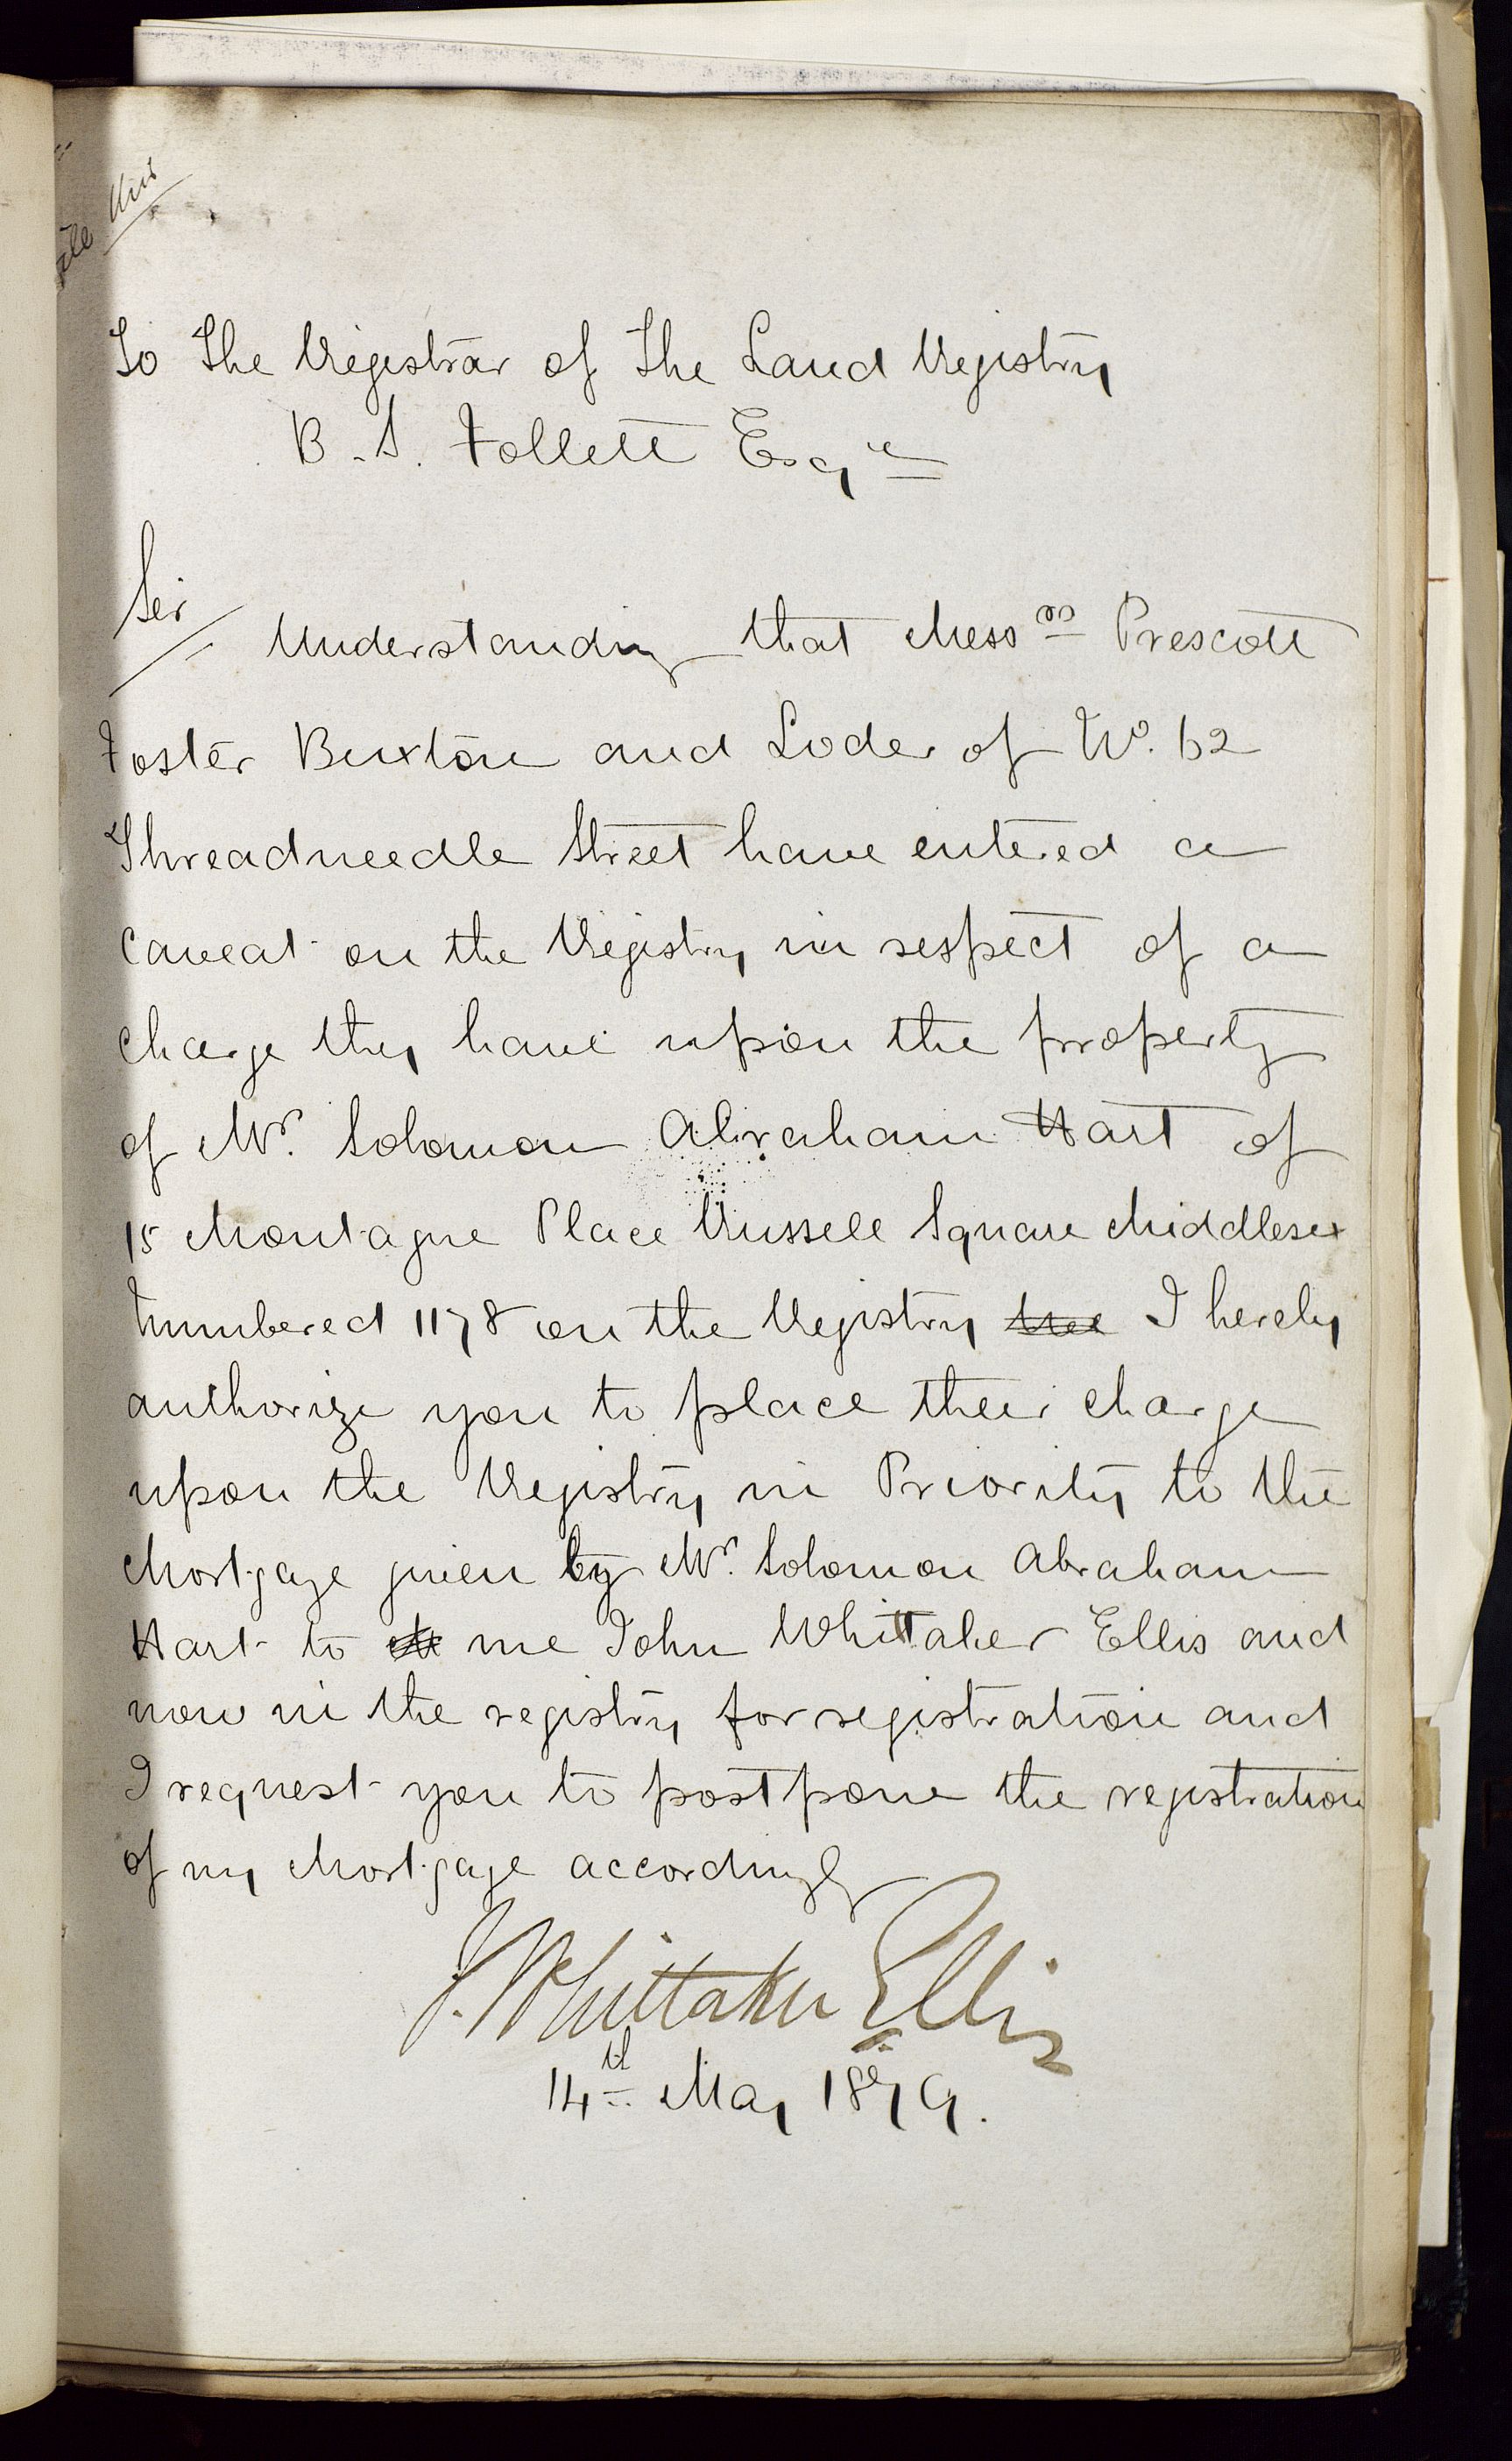 this
To The Registrar of The Land Registry
B. S. Follett Esqre
Sir
Understanding that Messrs Prescott
Foster Buxton and Loder of No. 62
Threadneedle Street have entered a
Caveat on the Registry in respect of a
charge they have upon the property
of Mr. Solomon Abraham Hart of
15 Montague Place Russell Square Middlesex
numbered 1178 on the Registry I hereby
authorize you to place their charge
upon the Registry in Priority to the
Mortgage given by Mr. Solomon Abraham
Hart to me John Whittaker Ellis and
now in the registry for registration and
I request you to postpone the registration
of my Mortgage accordingly
J. Whittaker Ellis
14th May 1879.